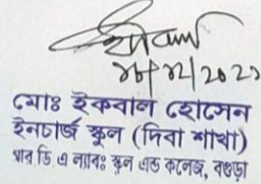 মোঃ ইকবাল হোসেন
ইনচার্জ স্কুল (দিবা শাখা)
আর.ডি.এ ল্যাবঃ স্কুল এন্ড কলেজ, বগুড়া